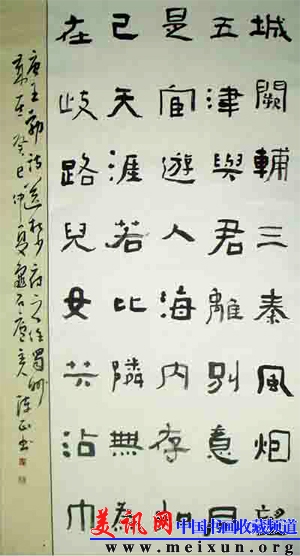 城闕輔三秦風烟望
五津與君離別意同
是宦遊人海内存知
己天涯若比隣無為
在歧路兒女共沾巾
唐王勃詩送杜少府之任蜀州
癸巳仲夏
書
美讯网 中国书画收藏频道
www.meixun.org